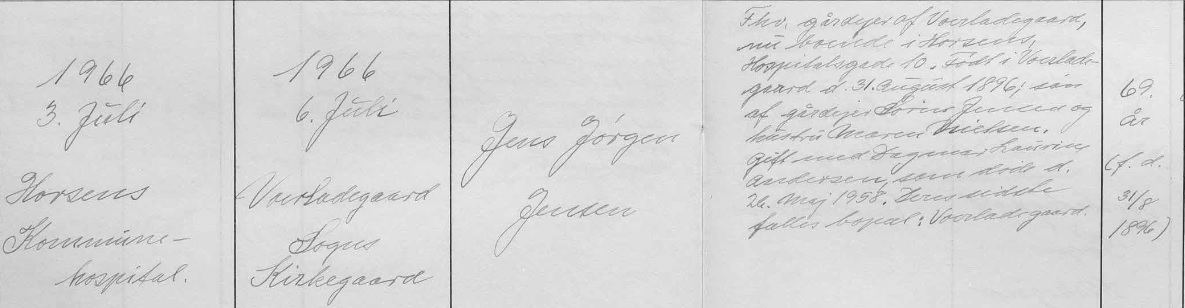 1966
3. Juli
Horsens
Kommune-
hospital.
1966
6. Juli
Voerladegaard
Sogns
Kirkegaard
Jens Jørgen
Jensen
Fhv. gårdejer af Voerladegaard,
nu boende i Horsens,
Hospitalsgade 10. Født i Voerlade-
gaard d. 31. August 1896; søn
af gårdejer Søren Jensen og
hustru Maren Nielsen.
Gift med Dagmar Laurine
Andersen, som døde d.
26. Maj 1958. Deres sidste
fælles bopæl: Voerladegaard.
69.
år
(f. d.
31/8
1896)